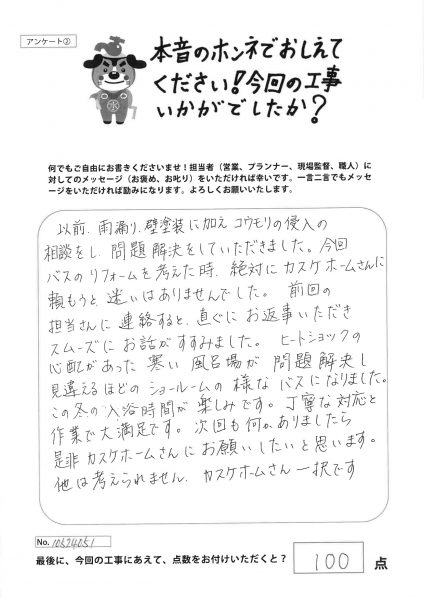 アンケート②
本音のホンネでおしえて
ください!今回の工事
いかがでしたか?
何でもご自由にお書きくださいませ!担当者(営業、プランナー、現場監督、職人)に
対してのメッセージ(お褒め、お叱り)をいただければ幸いです。一言二言でもメッセ
ージをいただければ励みになります。よろしくお願いいたします。
以前、雨漏り、壁塗装に加え コウモリの侵入の
相談をし、問題解決をしていただきました。今回
バスのリフォームを考えた時、絶対にカスケホームさんに
頼もうと 迷いはありませんでした。 前回の
担当さんに 連絡すると、直ぐに お返事いただき
スムーズに お話が すすみました。 ヒートショックの
心配があった 寒い 風呂場が 問題解決し
見違えるほどの ショールームの様な バスになりました。
この冬の入浴時間が 楽しみです。丁寧な対応と
作業で大満足です。次回も何かありましたら
是非 カスケホームさんに お願いしたいと思います。
他は考えられません。カスケホームさん一択です
No. 10524051
最後に、今回の工事にあえて、点数をお付けいただくと? 100 点